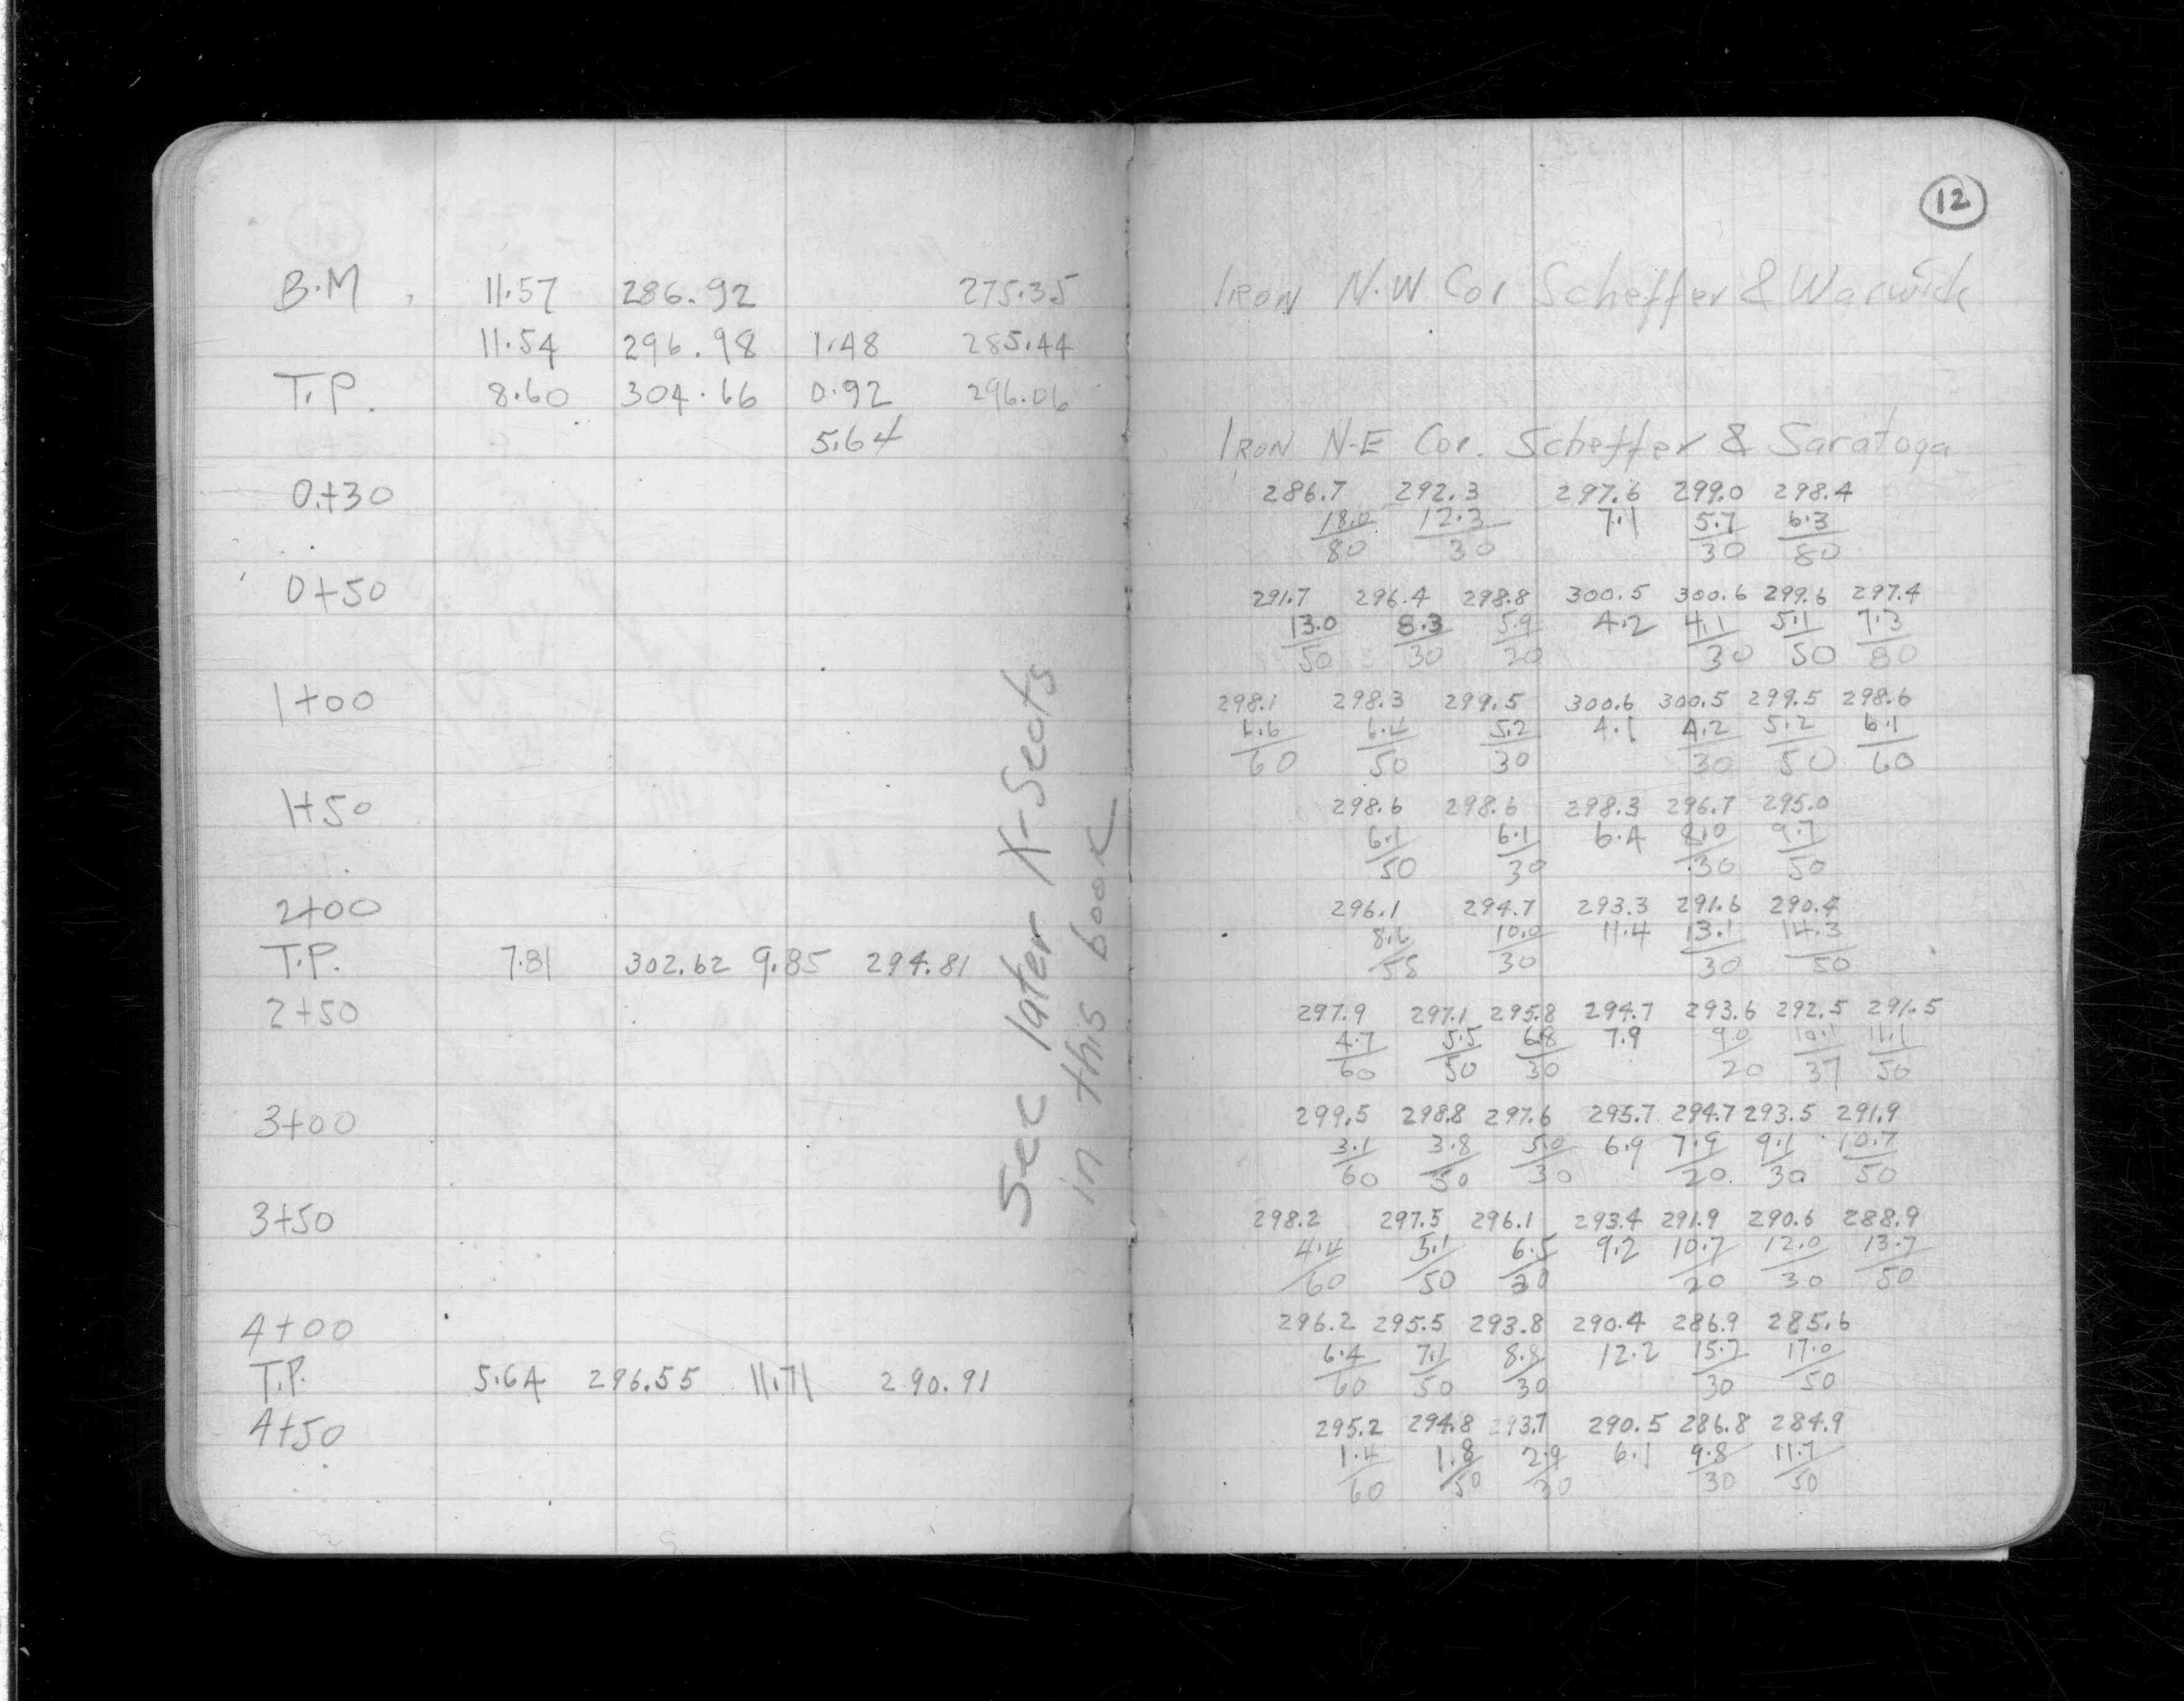 12
B.M 11.57 286.92 275.35 Iron N.W Cor Scheffer & Warwick
11.54 296.98 1.48 285.44
T.P. 8.60 304.66 0.92 296.06
5.64 Iron N-E Cor. Scheffer & Saratoga
0+30 286.7 292.3 297.6 299.0 298.4
18.0 12.3 7.1 5.7 6.3
80 30 30 80
0+50 291.7 296.4 298.8 300.5 300.6 299.6 297.4
13.0 8.3 5.9 4.2 4.1 5.1 7.3
50 30 20 30 50 80
1+00 298.1 298.3 299.5 300.6 300.5 299.5 298.6
6.6 6.4 5.2 4.1 4.2 5.2 6.1
60 50 30 30 50 60
1+50 298.6 298.6 298.3 296.7 295.0
6.1 6.1 6.4 8.0 9.7
50 30 30 50
2+00 296.1 294.7 293.3 291.6 290.4
8.6 10.0 11.4 13.1 14.3
T.P. 7.81 302.62 9.85 294.81
58 30 30 50
2+50 297.9 297.1 295.8 294.7 293.6 292.5 291.5
4.7 5.5 6.8 7.9 9.0 10.1 11.1
60 50 30 20 37 50
3+00 299.5 298.8 297.6 295.7 294.7 293.5 291.9
3.1 3.8 5.0 6.9 7.9 9.1 10.7
60 50 30 20 30 50
3+50 298.2 297.5 296.1 293.4 291.9 290.6 288.9
4.4 5.1 6.5 9.2 10.7 12.0 13.7
60 50 30 20 30 50
4+00 296.2 295.5 293.8 290.4 286.9 285.6
6.4 7.1 8.8 12.2 15.7 17.0
T.P. 5.64 296.55 11.71 290.91
60 50 30 30 50
4+50 295.2 294.8 293.7 290.5 286.8 284.9
1.4 1.8 2.9 6.1 9.8 11.7
60 50 30 30 50
See later X-Sects
in this book